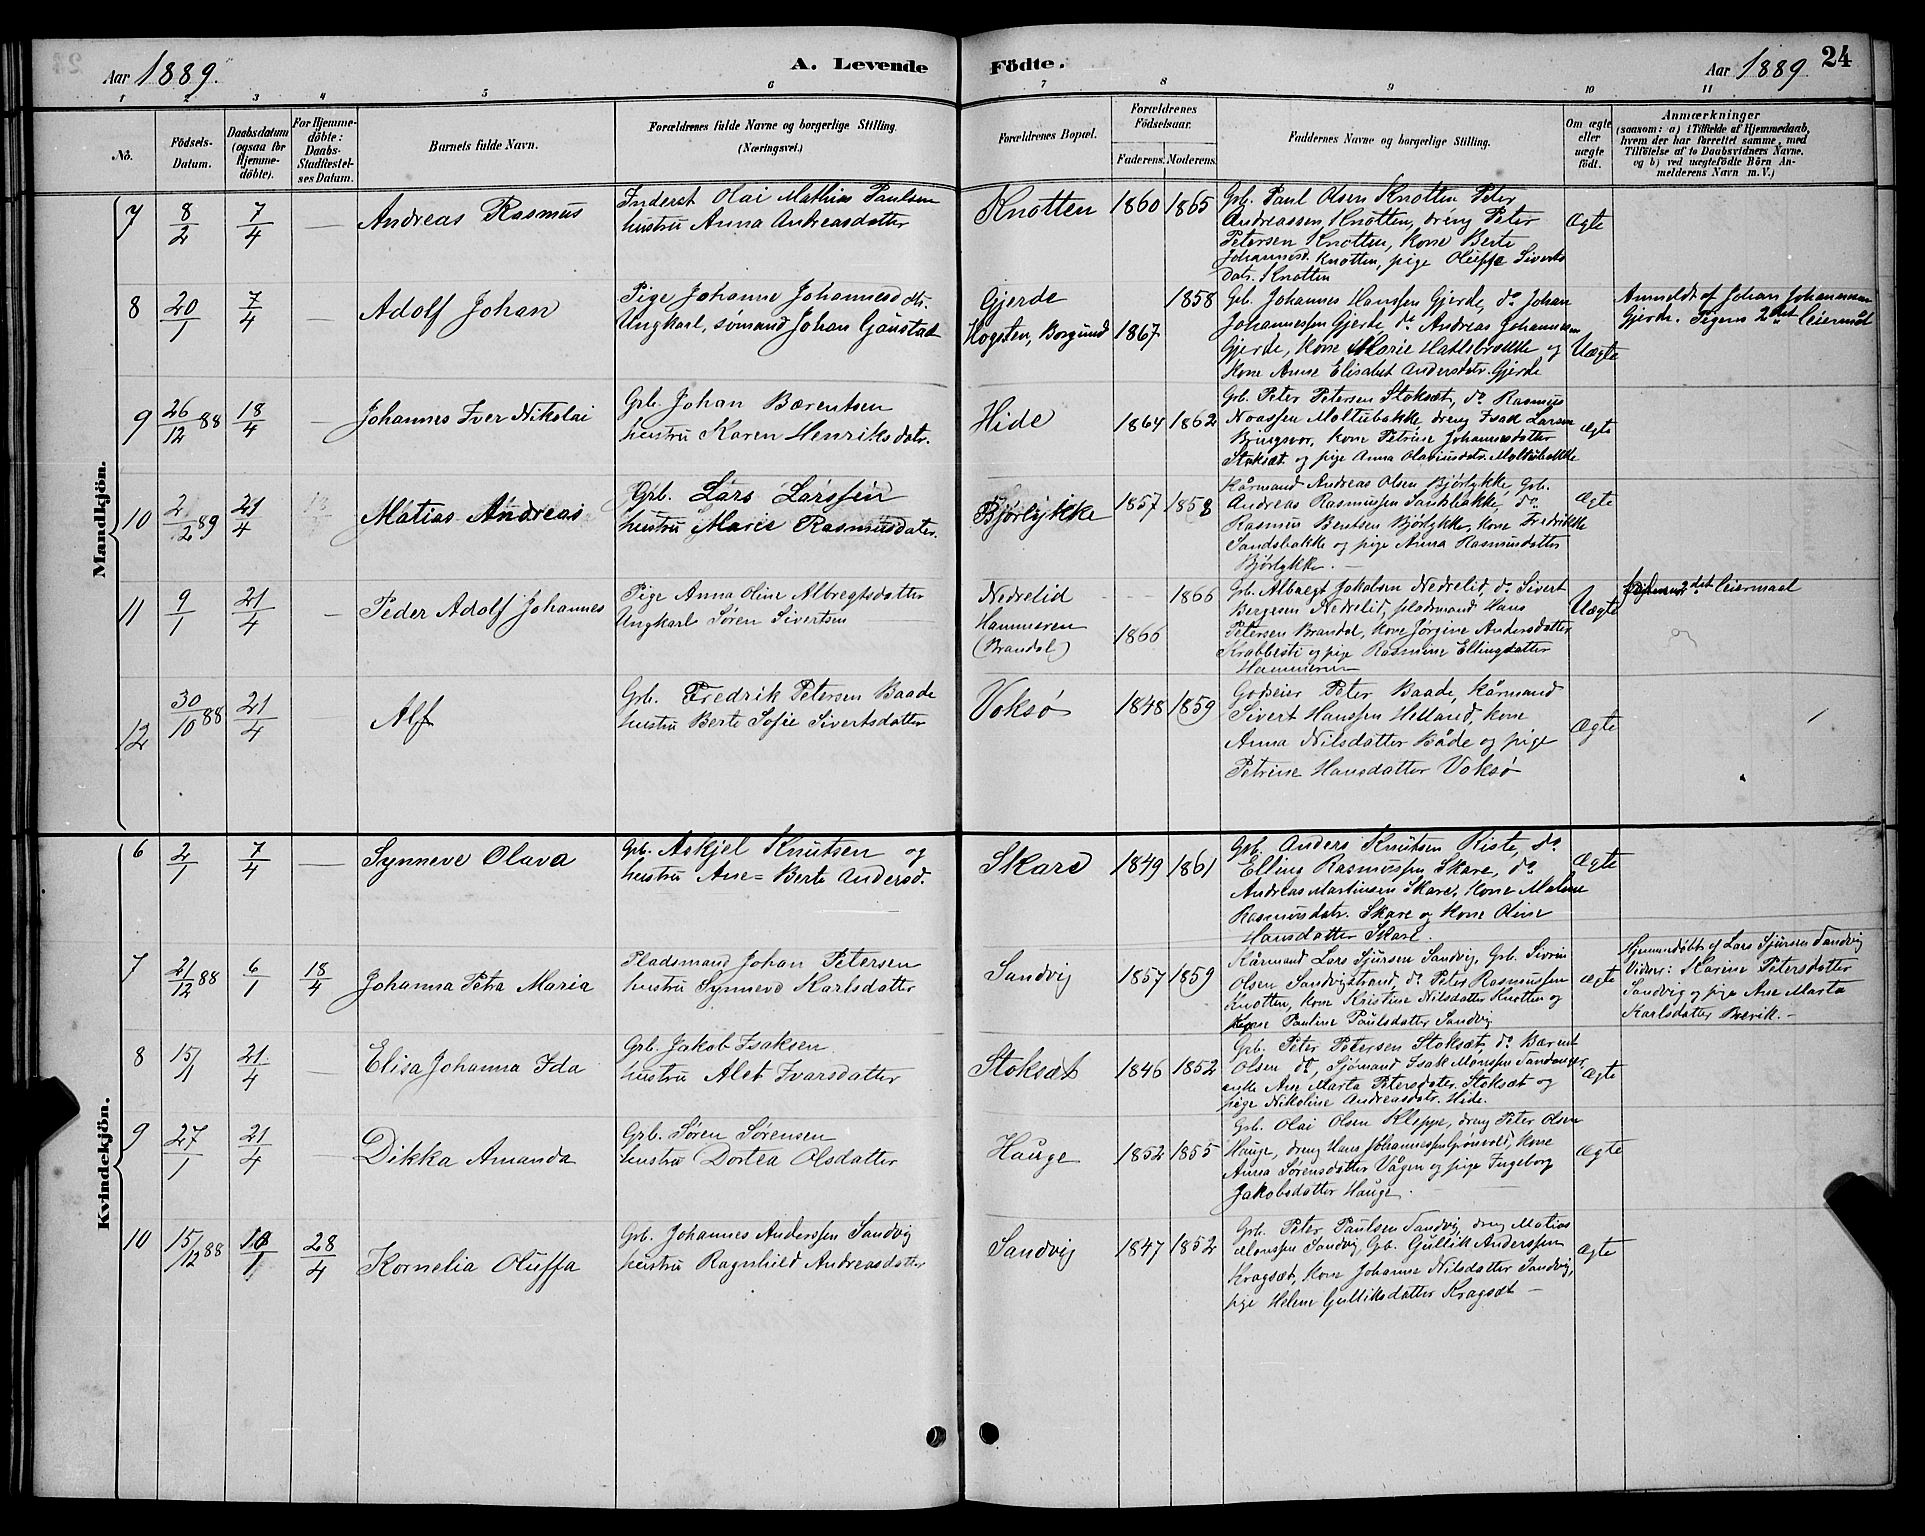 Aar 1889.
A. Levende
Födte.
Aar 1889
24
1 2 3 4 5 6 7 8 9 10 11
No.
Födsels-
Datum.
Daabsdatum
(ogsaa for
Hjemme-
döbte).
For Hjemme-
döbte:
Daabs-
Stadfæstel-
ses Datum.
Barnets fulde Navn.
Forældrenes fulde Navne og borgerlige Stilling.
(Næringsvei.)
Forældrenes Bopæl.
Forældrenes
Födselsaar.
Faderens. Moderens.
Faddernes Navne og borgerlige Stilling.
Om ægte
eller
uægte
født.
Anmærkninger
(saasom: a) i Tilfælde af Hjemmedaab,
hvem der har forrettet samme, med
Tilføielse af to Daabsvidners Navne,
og b) ved uægtefødte Börn An-
melderens Navn m. V.)
Mandkjön.
7 8/2 7/4 — Andreas Rasmus
Inderst Olai Mathias Paulsen
hustru Anna Andreasdatter
Knotten 1860 1865
Grb. Paul Olsen Knotten Peter
Andreassen Knotten, dreng Peter
Petersen Knotten, kone Berte
Johannesd. Knotten, pige Oluffa Siverts
datr. Knotten
Ægte
8 20/1 7/4 — Adolf Johan
Pige Johanne Johannesdtr.
Ungkarl, sømand Johan Gaustad
Gjerde 1858
Hogsten, Borgund 1867
Grb. Johannes Hanssen Gjerde, do Johan
Johannessen Gjerde, do Andreas Johannessen
Gjerde, kone Marie Hatlebrække og
kone Anne Elisabet Andersdatr. Gjerde
Uægte
Anmeldt af Johan Johannessen
Gjerde. Pigens 2det Leiermål
9 26/12 88 18/4 — Johannes Iver Nikolai
Grb. Johan Bærentsen
hustru Karen Henriksdatr.
Hide 1864 1862
Grb. Peter Petersen Stoksæt, do Rasmus
Noassen Moltubakke, dreng Isak Larsen
kone Petrine Johannesdatter
Stoksæt og pige Anna Olavusdatr. Moltubakke
Ægte
10 2/2 89 21/4 Matias Andreas
Grb. Lars Larssen
hustru Marie Rasmusdater.
Bjørlykke 1857 1858
Kårmand Andreas Olsen Bjørlykke, Grb.
Andreas Rasmussen Sandsbakke, do
Rasmus Bentsen Bjørlykke, kone Fredrikke
Sandsbakke og pige Anna Rasmusdatter
Bjørlykke. —
Ægte
11 9/1 21/4 — Peder Adolf Johannes
Pige Anna Oline Albregtsdatter
Ungkarl Søren Sivertsen
Nedrelid 1866
Hammeren
(Brandal) 1866
Grb. Albregt Jakobsen Nedrelid, do Sivert
Bergesen Nedrelid, pladsmand Hans
Petersen Brandal, kone Jørgine Andersdatter
Krabbesti og pige Rasmine Ellingsdatter
Hammeren
Uægte
2det Leiermaal
12 30/10 88 21/4 Alf
Grb. Fredrik Petersen Baade
hustru Berte Sofie Sivertsdatter
Voksø 1848 1859
Godseier Peter Baade, Kårmand
Sivert Hanssen Helland, kone
Anna Nilsdatter Både og pige
Petrine Hansdatter Voksø
Ægte
Kvindekjön.
6 2/1 7/4 — Synneve Olava
Grb. Askjel Knutsen og
hustru Ane= Berte Andersd.
Skare 1849 1861
Grb. Anders Knutsen Riste, do
Elling Rasmussen Skare, do
Andreas Martinsen Skare, kone Malene
Rasmusdatr. Skare og kone Oline
Hansdatter Skare.
Ægte
7 21/12 88 6/1 18/4 Johanna Petra Maria
Pladsmand Johan Petersen
hustru Synneve Karlsdatter
Sandvig 1857 1859
Kårmand Lars Sjursen Sandvig, Grb. Sivrin
Olsen Sandvigstrand, do Peter Rasmussen
Knotten, kone Kristine Nilsdatter Knotten og
kone Pauline Paulsdatter Sandvig
Ægte
Hjemmedøbt af Lars Sjursen Sandvig
Vidner: Karine Petersdatter
Sandvig og pige Ane Marta
Karlsdatter Brevik. —
8 15/1 21/4 — Elisa Johanna Ida
Grb. Jakob Isaksen
hustru Alet Ivarsdatter
Stoksæt 1846 1852
Grb. Peter Petersen Stoksæt, do Bærent
Olsen do, Sjømand Isak Monssen Sandanger,
enke Ane Marta Petersdater Stoksæt og
pige Nikoline Andreasdatr. Hide.
Ægte
9 27/1 21/4 Dikka Amanda
Grb. Søren Sørensen
hustru Dortea Olsdatter
Hauge 1852 1855
Grb. Olai Olsen Kleppe, dreng Peter Olsen
Hauge, dreng Hans Johannessen Grønvold, kone
Anna Sørensdatter Vågen og pige Ingeborg
Jakobsdatter Hauge.
Ægte
10 15/12 88 10/1 28/4 Kornelia Oluffa
Grb. Johannes Anderssen Sandvig
hustru Ragnhild Andreasdatter
Sandvig 1847 1852
Grb. Peter Paulsen Sandvig, dreng Matias
Monssen Sandvig, Grb. Gullik Anderssen
Kragsæt, kone Johanne Nilsdatter Sandvig,
pige Helene Gulliksdatter Kragsæt —
Ægte